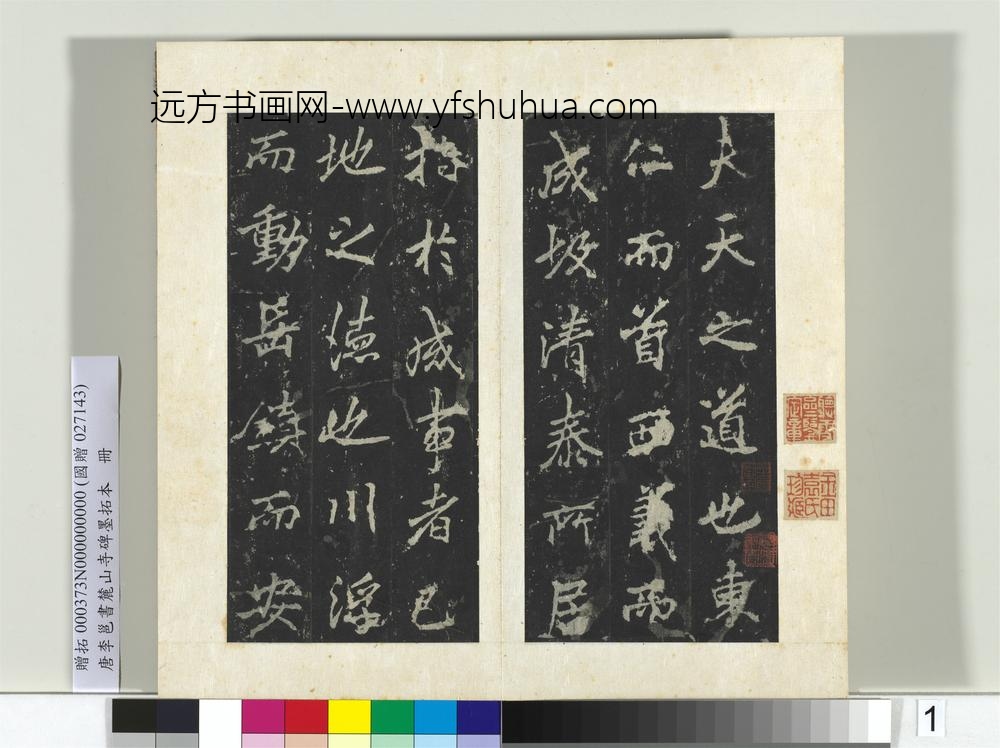 远方书画网-www.yfshuhua.com
夫天之道也東
仁而首西義而
成坺清泰所居
將於成事者已
地之德也川浮
而動岳鎮而安
贈拓 000373N000000000 (國贈 027143)
唐李邕書麓山寺碑墨拓本 冊
1